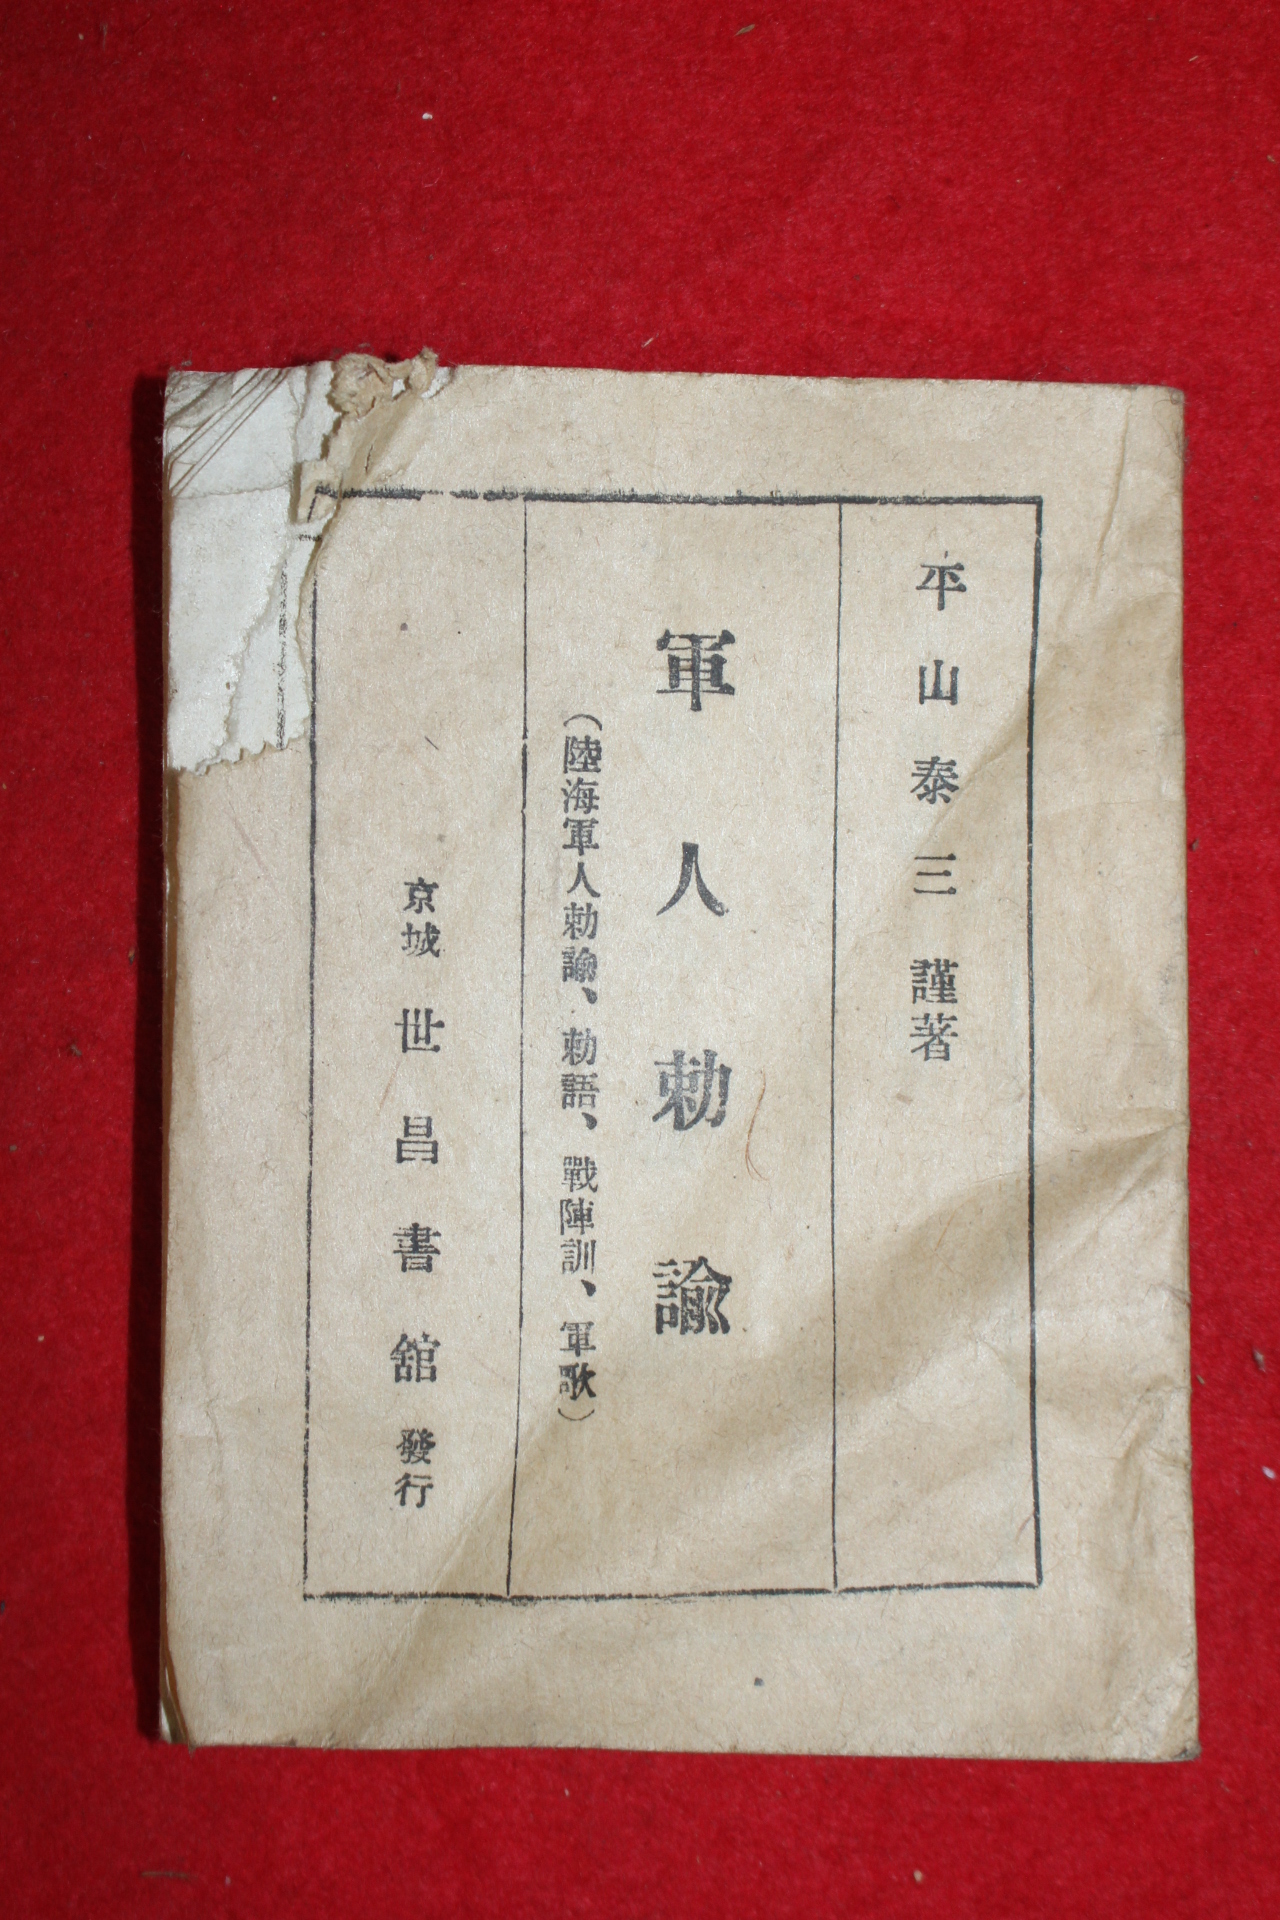 平山泰三 謹著
軍人勅諭
(陸海軍人勅諭、勅語、戰陣訓、軍歌)
京城 世昌書舘 發行